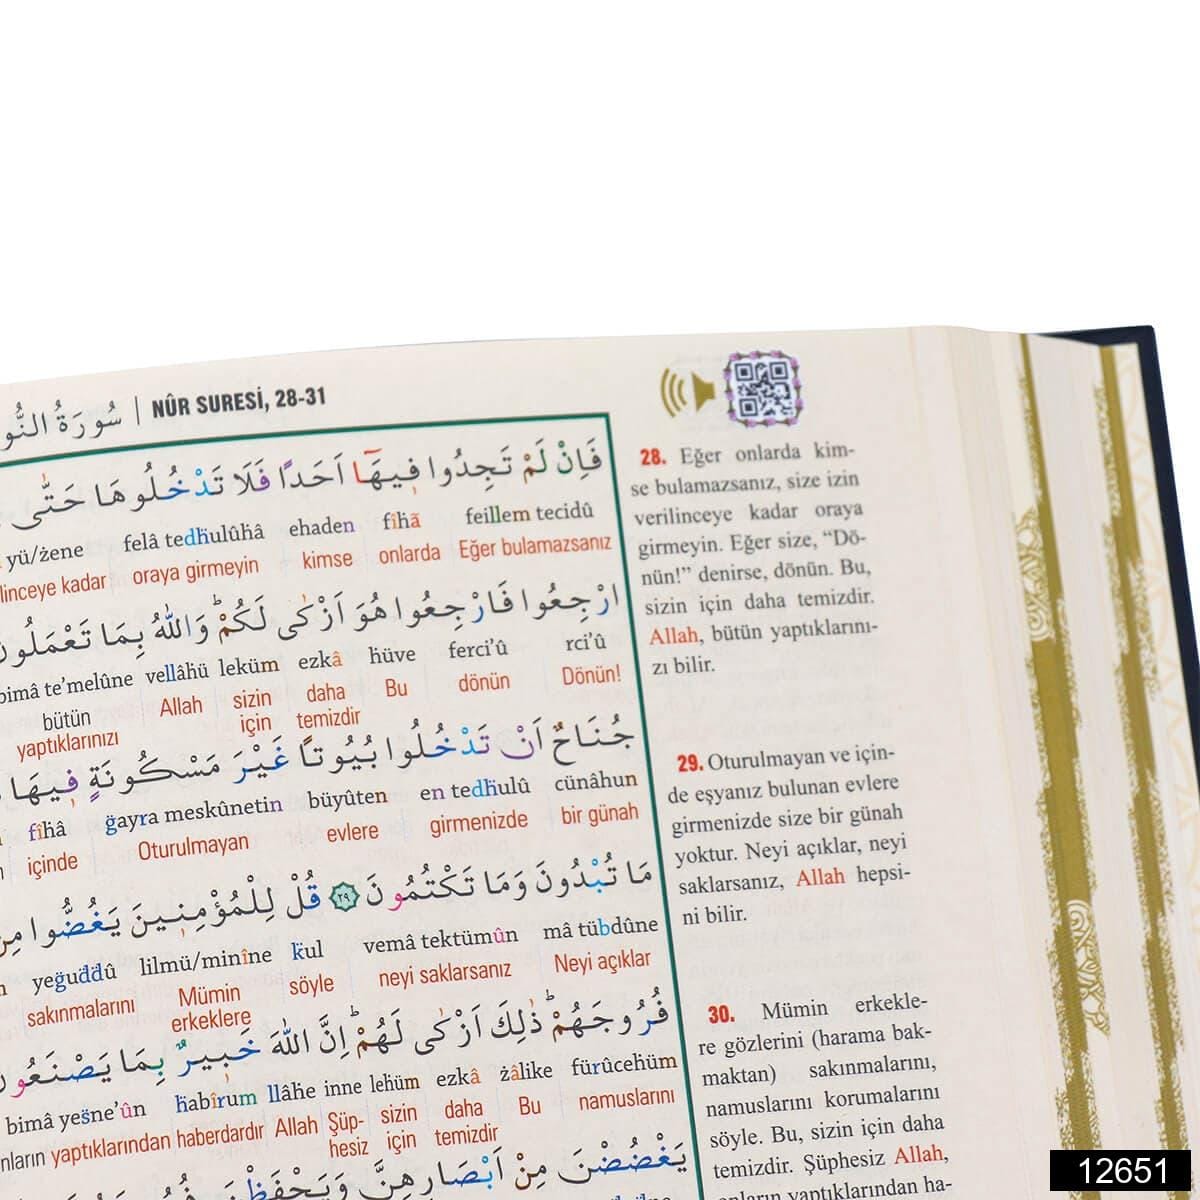 سُورَةُ النُّو | NÛR SURESİ, 28-31
فَاِنْ لَمْ تَجِدُوا فٖيهَٓا اَحَدًا فَلَا تَدْخُلُوهَا حَتّٰى
feillem tecidû fîhâ ehaden felâ tedhulûhâ yü/żene
Eğer bulamazsanız onlarda kimse oraya girmeyin linceye kadar
ارْجِعُوا فَارْجِعُوا هُوَ اَزْكٰى لَكُمْ وَاللّٰهُ بِمَا تَعْمَلُونَ
rci'û ferci'û hüve ezkâ leküm vellâhü bimâ te'melûne
Dönün! dönün Bu daha temizdir sizin için Allah bütün yaptıklarınızı
جُنَاحٌ اَنْ تَدْخُلُوا بُيُوتًا غَيْرَ مَسْكُونَةٍ فٖيهَا
cünâhun en tedhulû büyûten ğayra meskûnetin fîhâ
bir günah girmenizde evlere Oturulmayan içinde
مَا تُبْدُونَ وَمَا تَكْتُمُونَ ٢٩ قُلْ لِلْمُؤْمِنٖينَ يَغُضُّوا مِنْ
mâ tübdûne vemâ tektümûn kul lilmü/minîne yeğuddû
Neyi açıklar neyi saklarsanız söyle Mümin erkeklere sakınmalarını
فُرُوجَهُمْ ذٰلِكَ اَزْكٰى لَهُمْ اِنَّ اللّٰهَ خَبٖيرٌ بِمَا يَصْنَعُونَ
fürûcehüm żâlike ezkâ lehüm inne llâhe habîrum bimâ yesne'ûn
namuslarını Bu daha temizdir sizin için Şüp-hesiz Allah haberdardır yaptıklarından nların
يَغْضُضْنَ مِنْ اَبْصَارِهِنَّ وَيَحْفَظْنَ
28. Eğer onlarda kim-
se bulamazsanız, size izin
verilinceye kadar oraya
girmeyin. Eğer size, “Dö-
nün!” denirse, dönün. Bu,
sizin için daha temizdir.
Allah, bütün yaptıklarını-
zı bilir.
29. Oturulmayan ve için-
de eşyanız bulunan evlere
girmenizde size bir günah
yoktur. Neyi açıklar, neyi
saklarsanız, Allah hepsi-
ni bilir.
30. Mümin erkekle-
re gözlerini (harama bak-
maktan) sakınmalarını,
namuslarını korumalarını
söyle. Bu, sizin için daha
temizdir. Şüphesiz Allah,
onların yaptıklarından ha-
12651